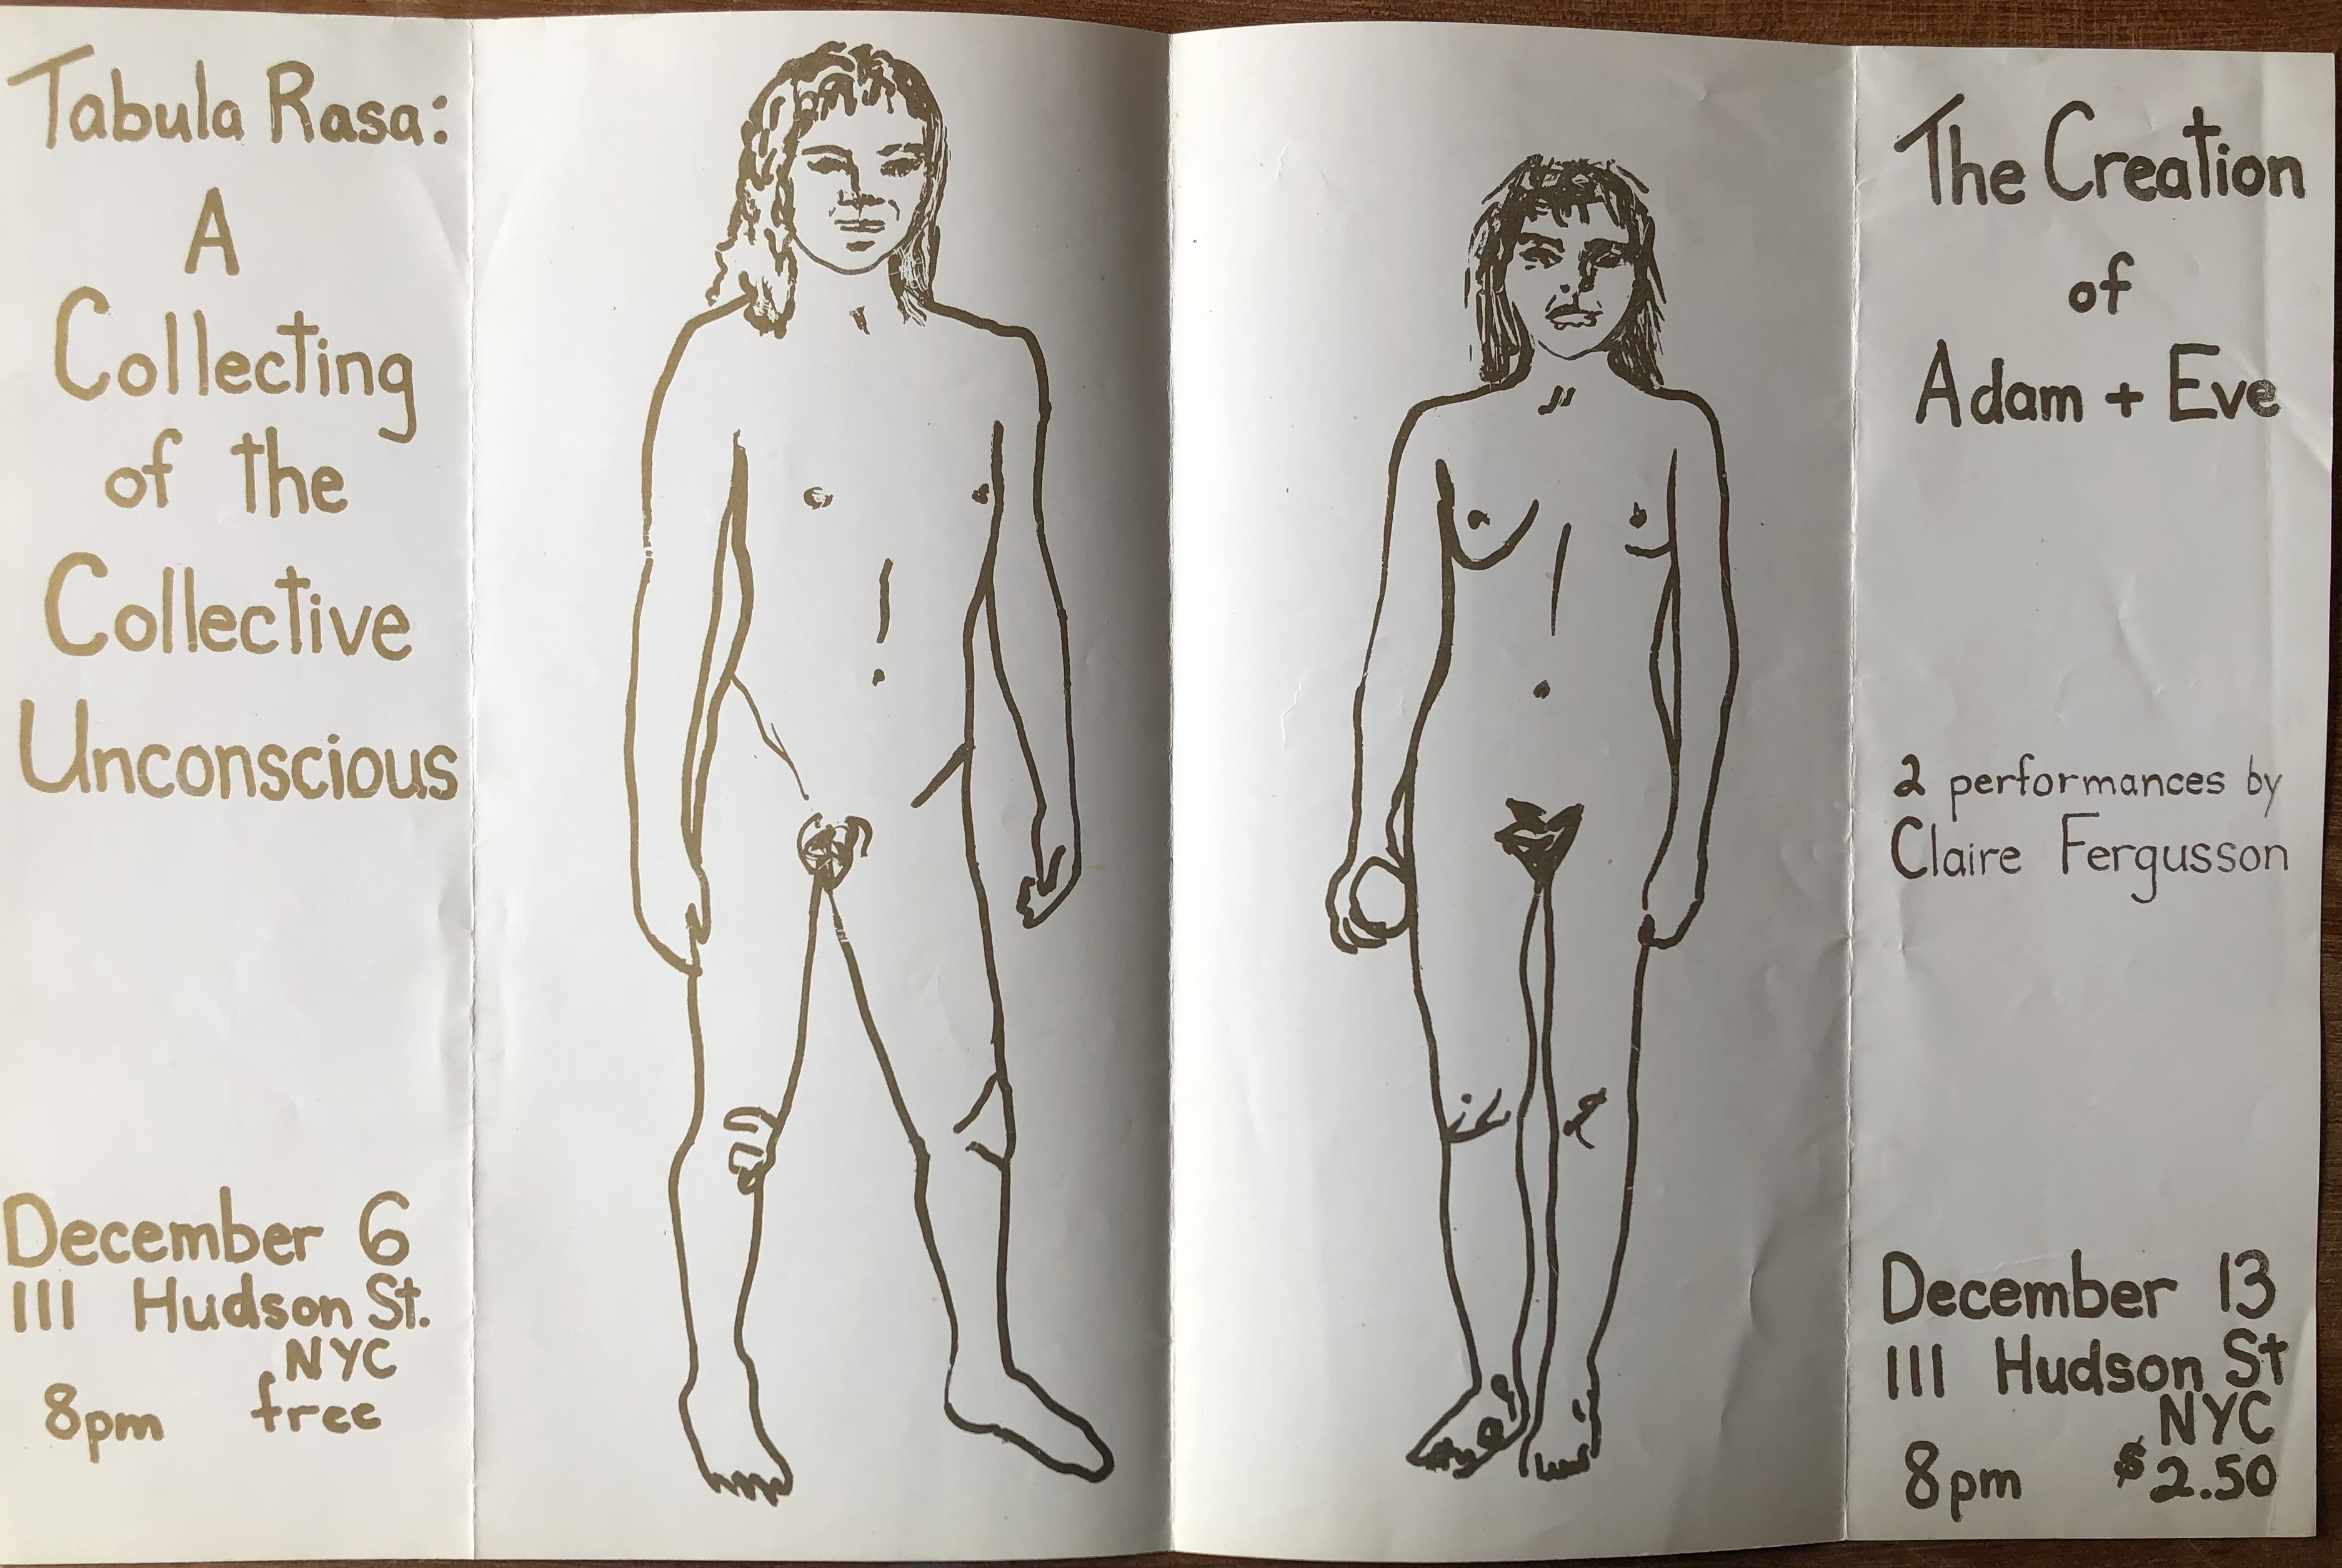 Tabula Rasa:
A
Collecting
of the
Collective
Unconscious
December 6
111 Hudson St.
NYC
8pm free
The Creation
of
Adam + Eve
2 performances by
Claire Fergusson
December 13
111 Hudson St
NYC
8pm $2.50